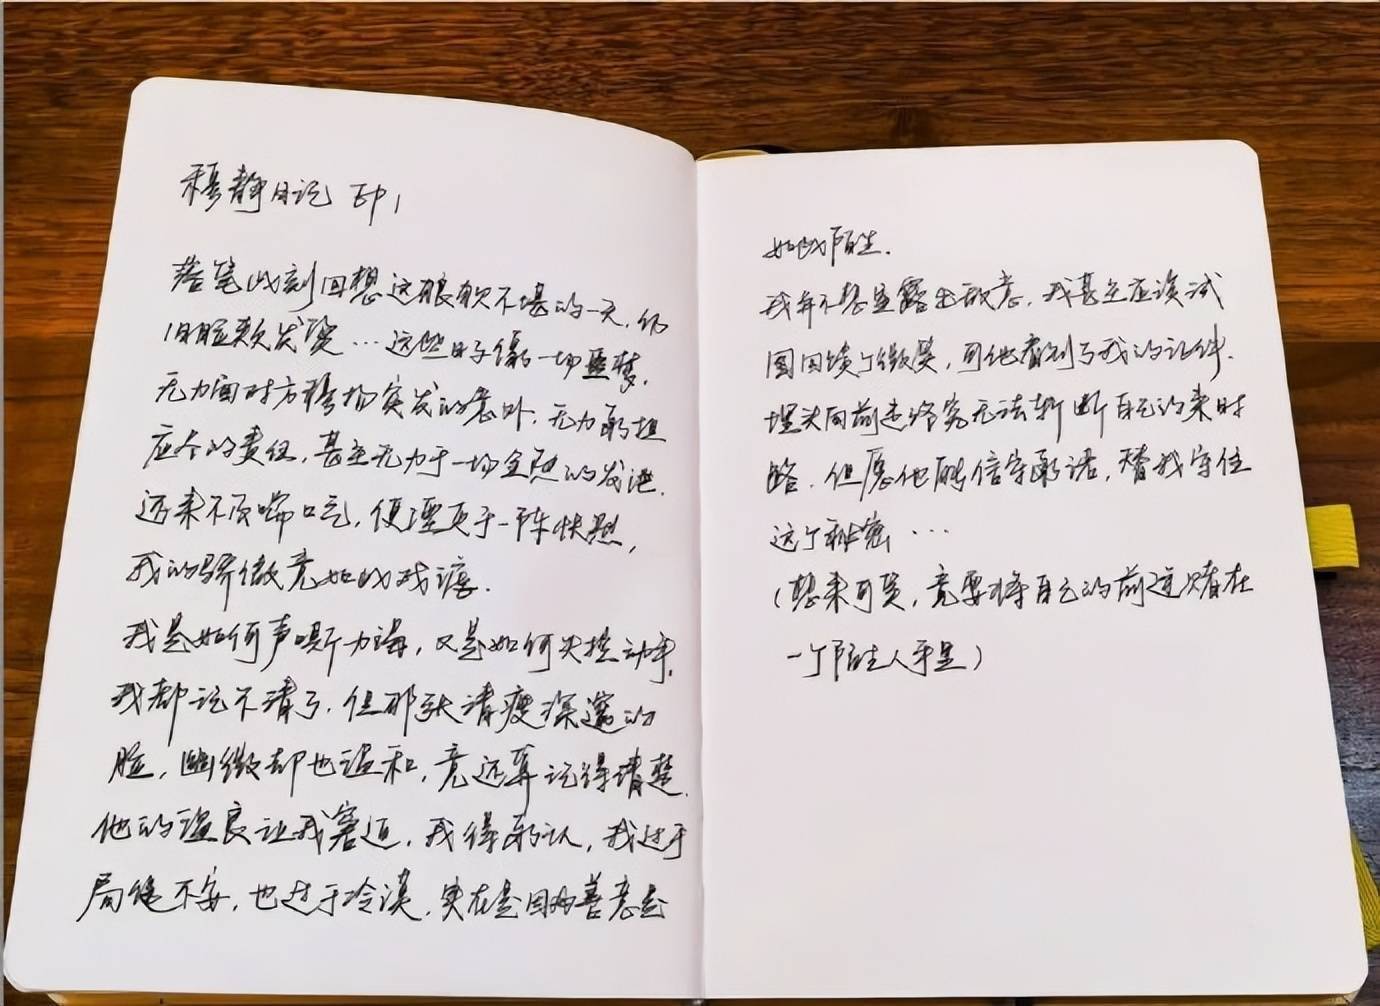 穆静日记 EP1
落笔此刻回想这狼狈不堪的一天，仍
旧脸颊发烫…这些日子像一场噩梦，
无力面对方穆扬突发的意外，无力承担
应尽的责任，甚至无力于一场坦然的发泄.
还来不及喘口气，便湮灭于一阵快
我的骄傲竟如此残
我是如何声嘶力竭，又是如何失控动手，
我都记不清了，但那张清瘦深邃的
脸，幽微却也温和，竟还算记得清楚.
他的温良让我窘迫，我得承认，我过于
局促不安，也过于冷漠，实在是因为善意是
如此陌生.
我并不想显露出敌意，我甚至应该试
图回馈个微笑，可他看到了我的证件.
埋头向前走终究无法斩断自己的来时
路，但愿他能信守承诺，替我守住
这个秘密…
（想来可笑，竟要将自己的前途赌在
一个陌生人手里）